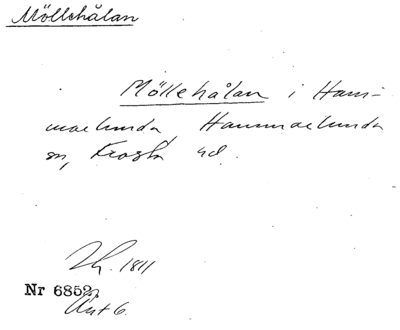 Möllehålan
Möllehålan i Ham-
marlunda, Hammarlunda
sn, Frosta hd.
1811
Nr 6852.
Avt 6.